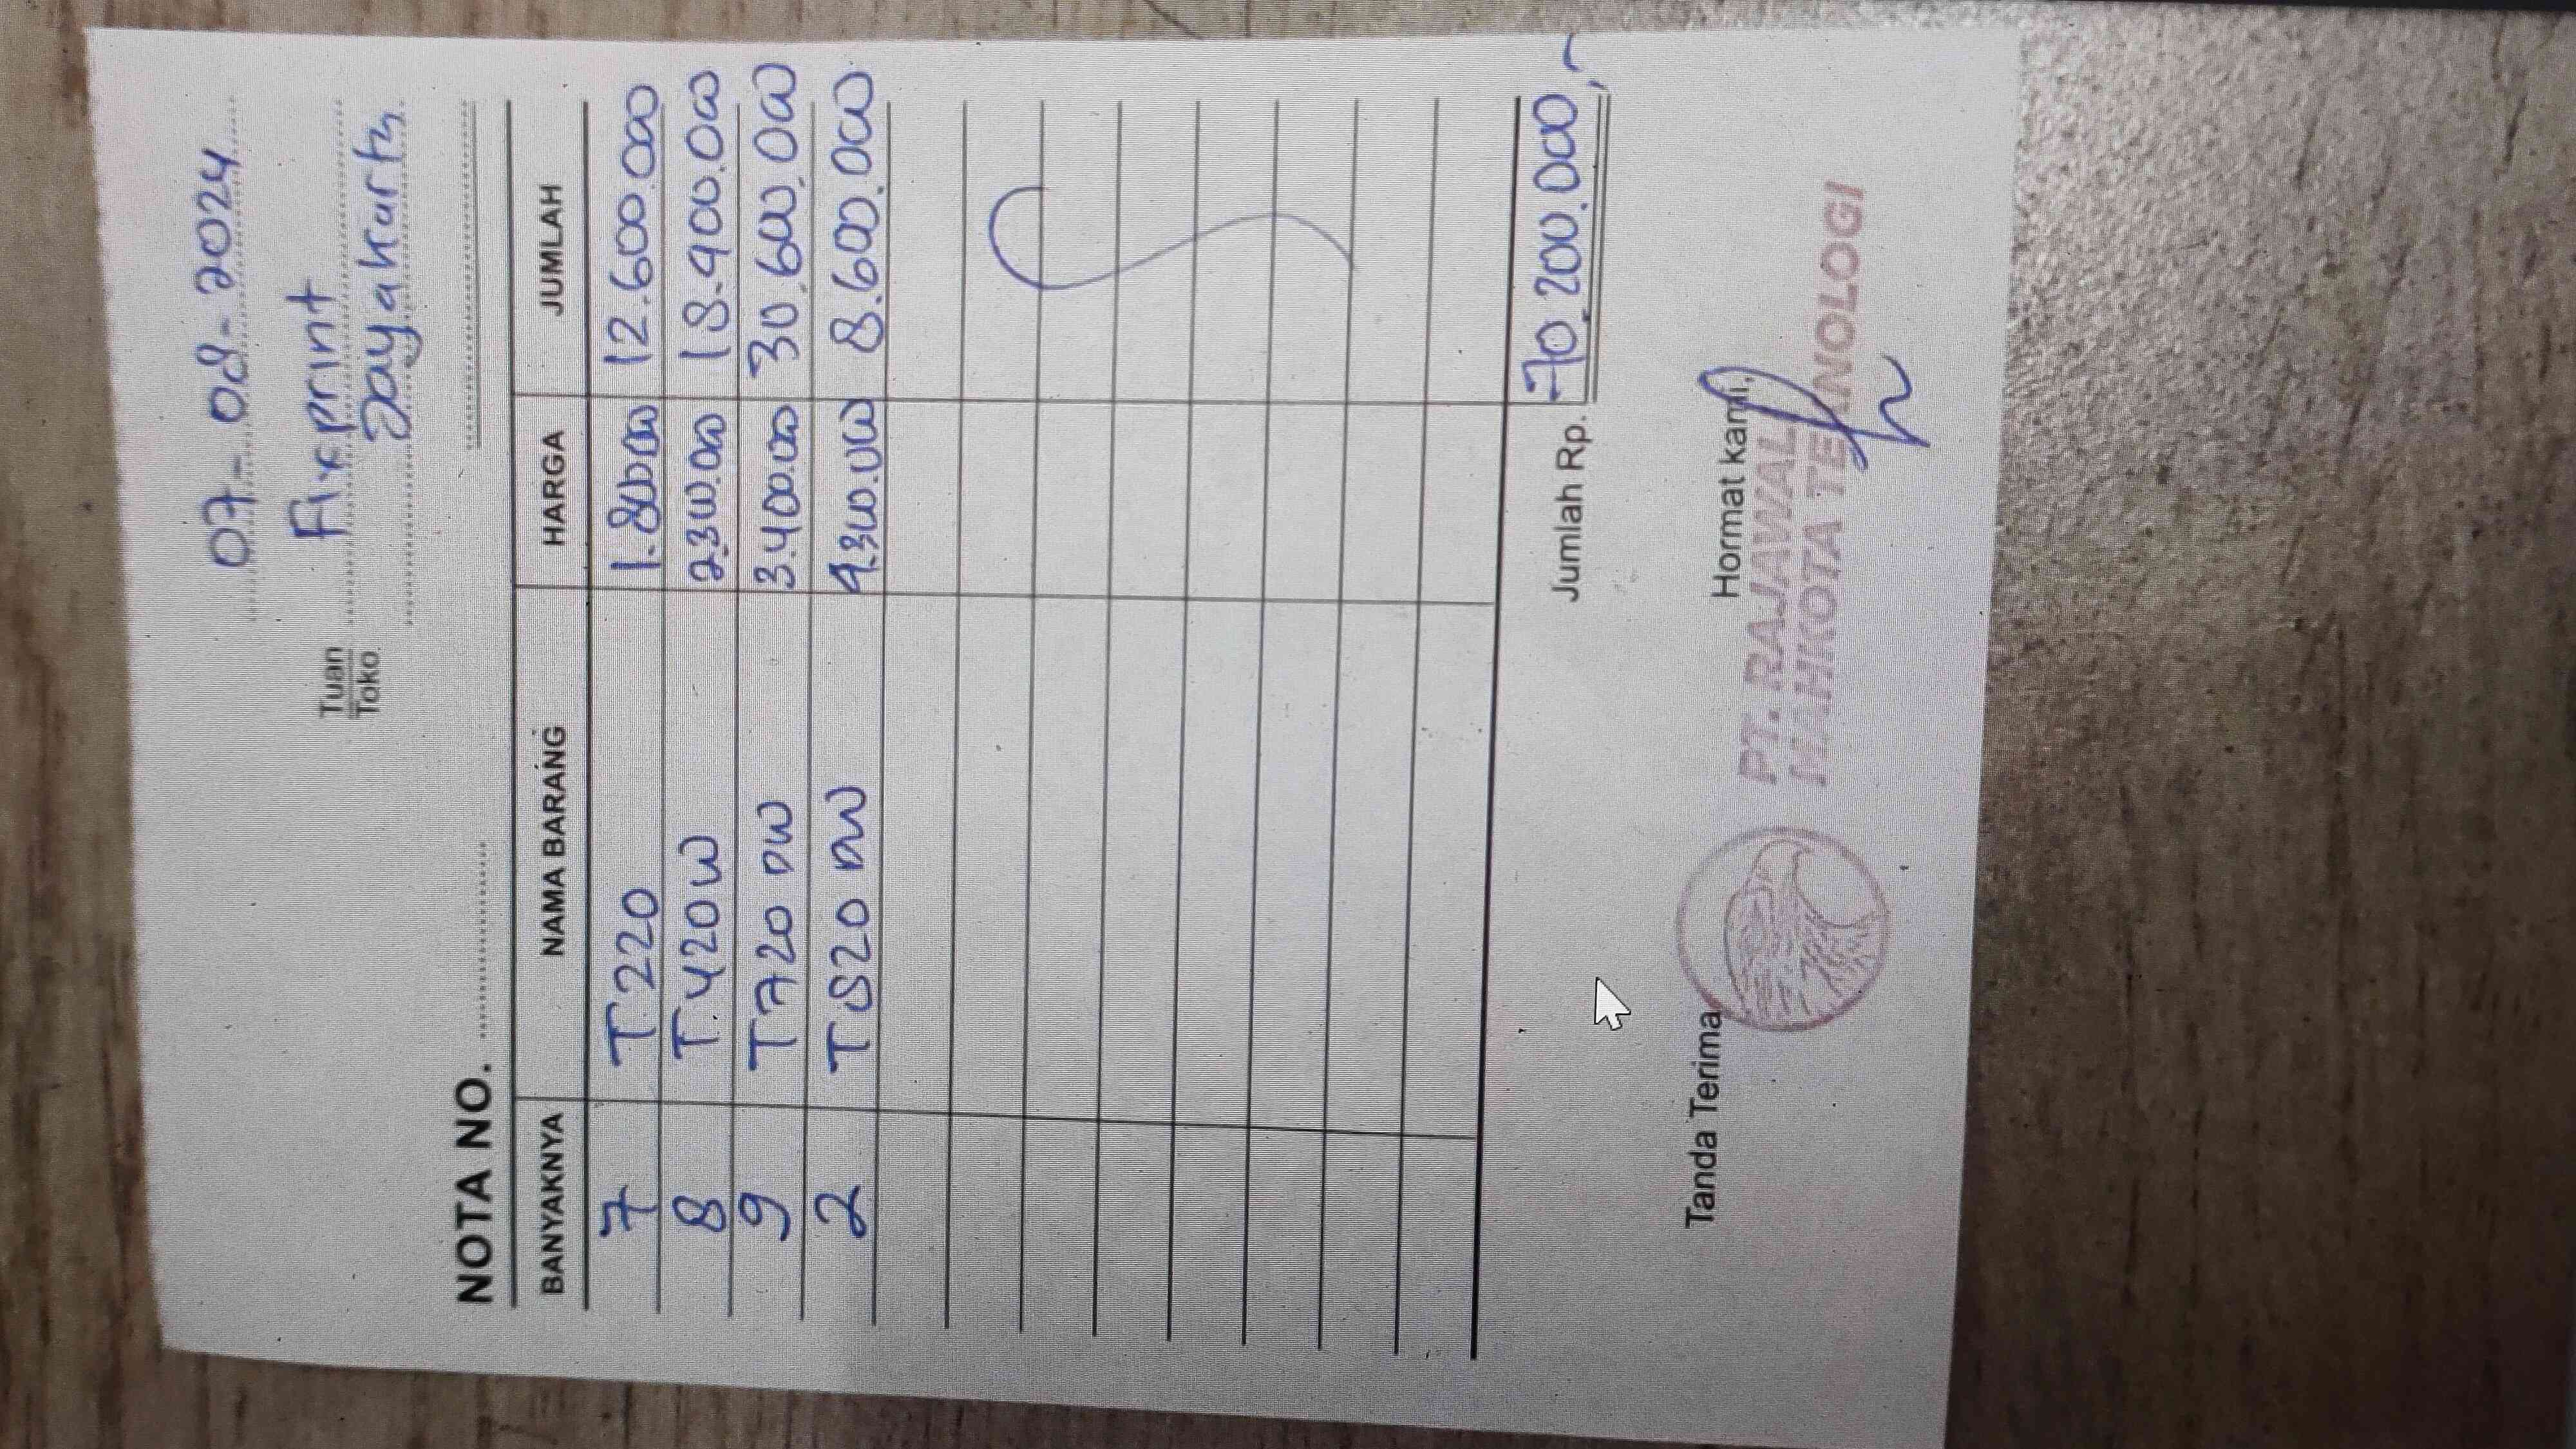 07-08-2024
Tuan
Toko
Fixprint
Jayakarta
NOTA NO.
BANYAKNYA NAMA BARANG HARGA JUMLAH
7 T220 1.800.000 12.600.000
8 T.420W 2.300.000 18.400.000
9 T720 DW 3.400.000 30.600.000
2 T820 DW 4.300.000 8.600.000
Jumlah Rp. 70.200.000,-
Tanda Terima Hormat kami,
PT. RAJAWALI
MAHKOTA TEKNOLOGI